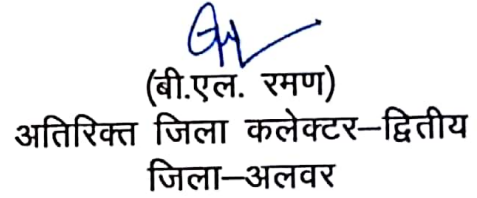 (बी.एल. रमण)
अतिरिक्त जिला कलेक्टर–द्वितीय
जिला–अलवर